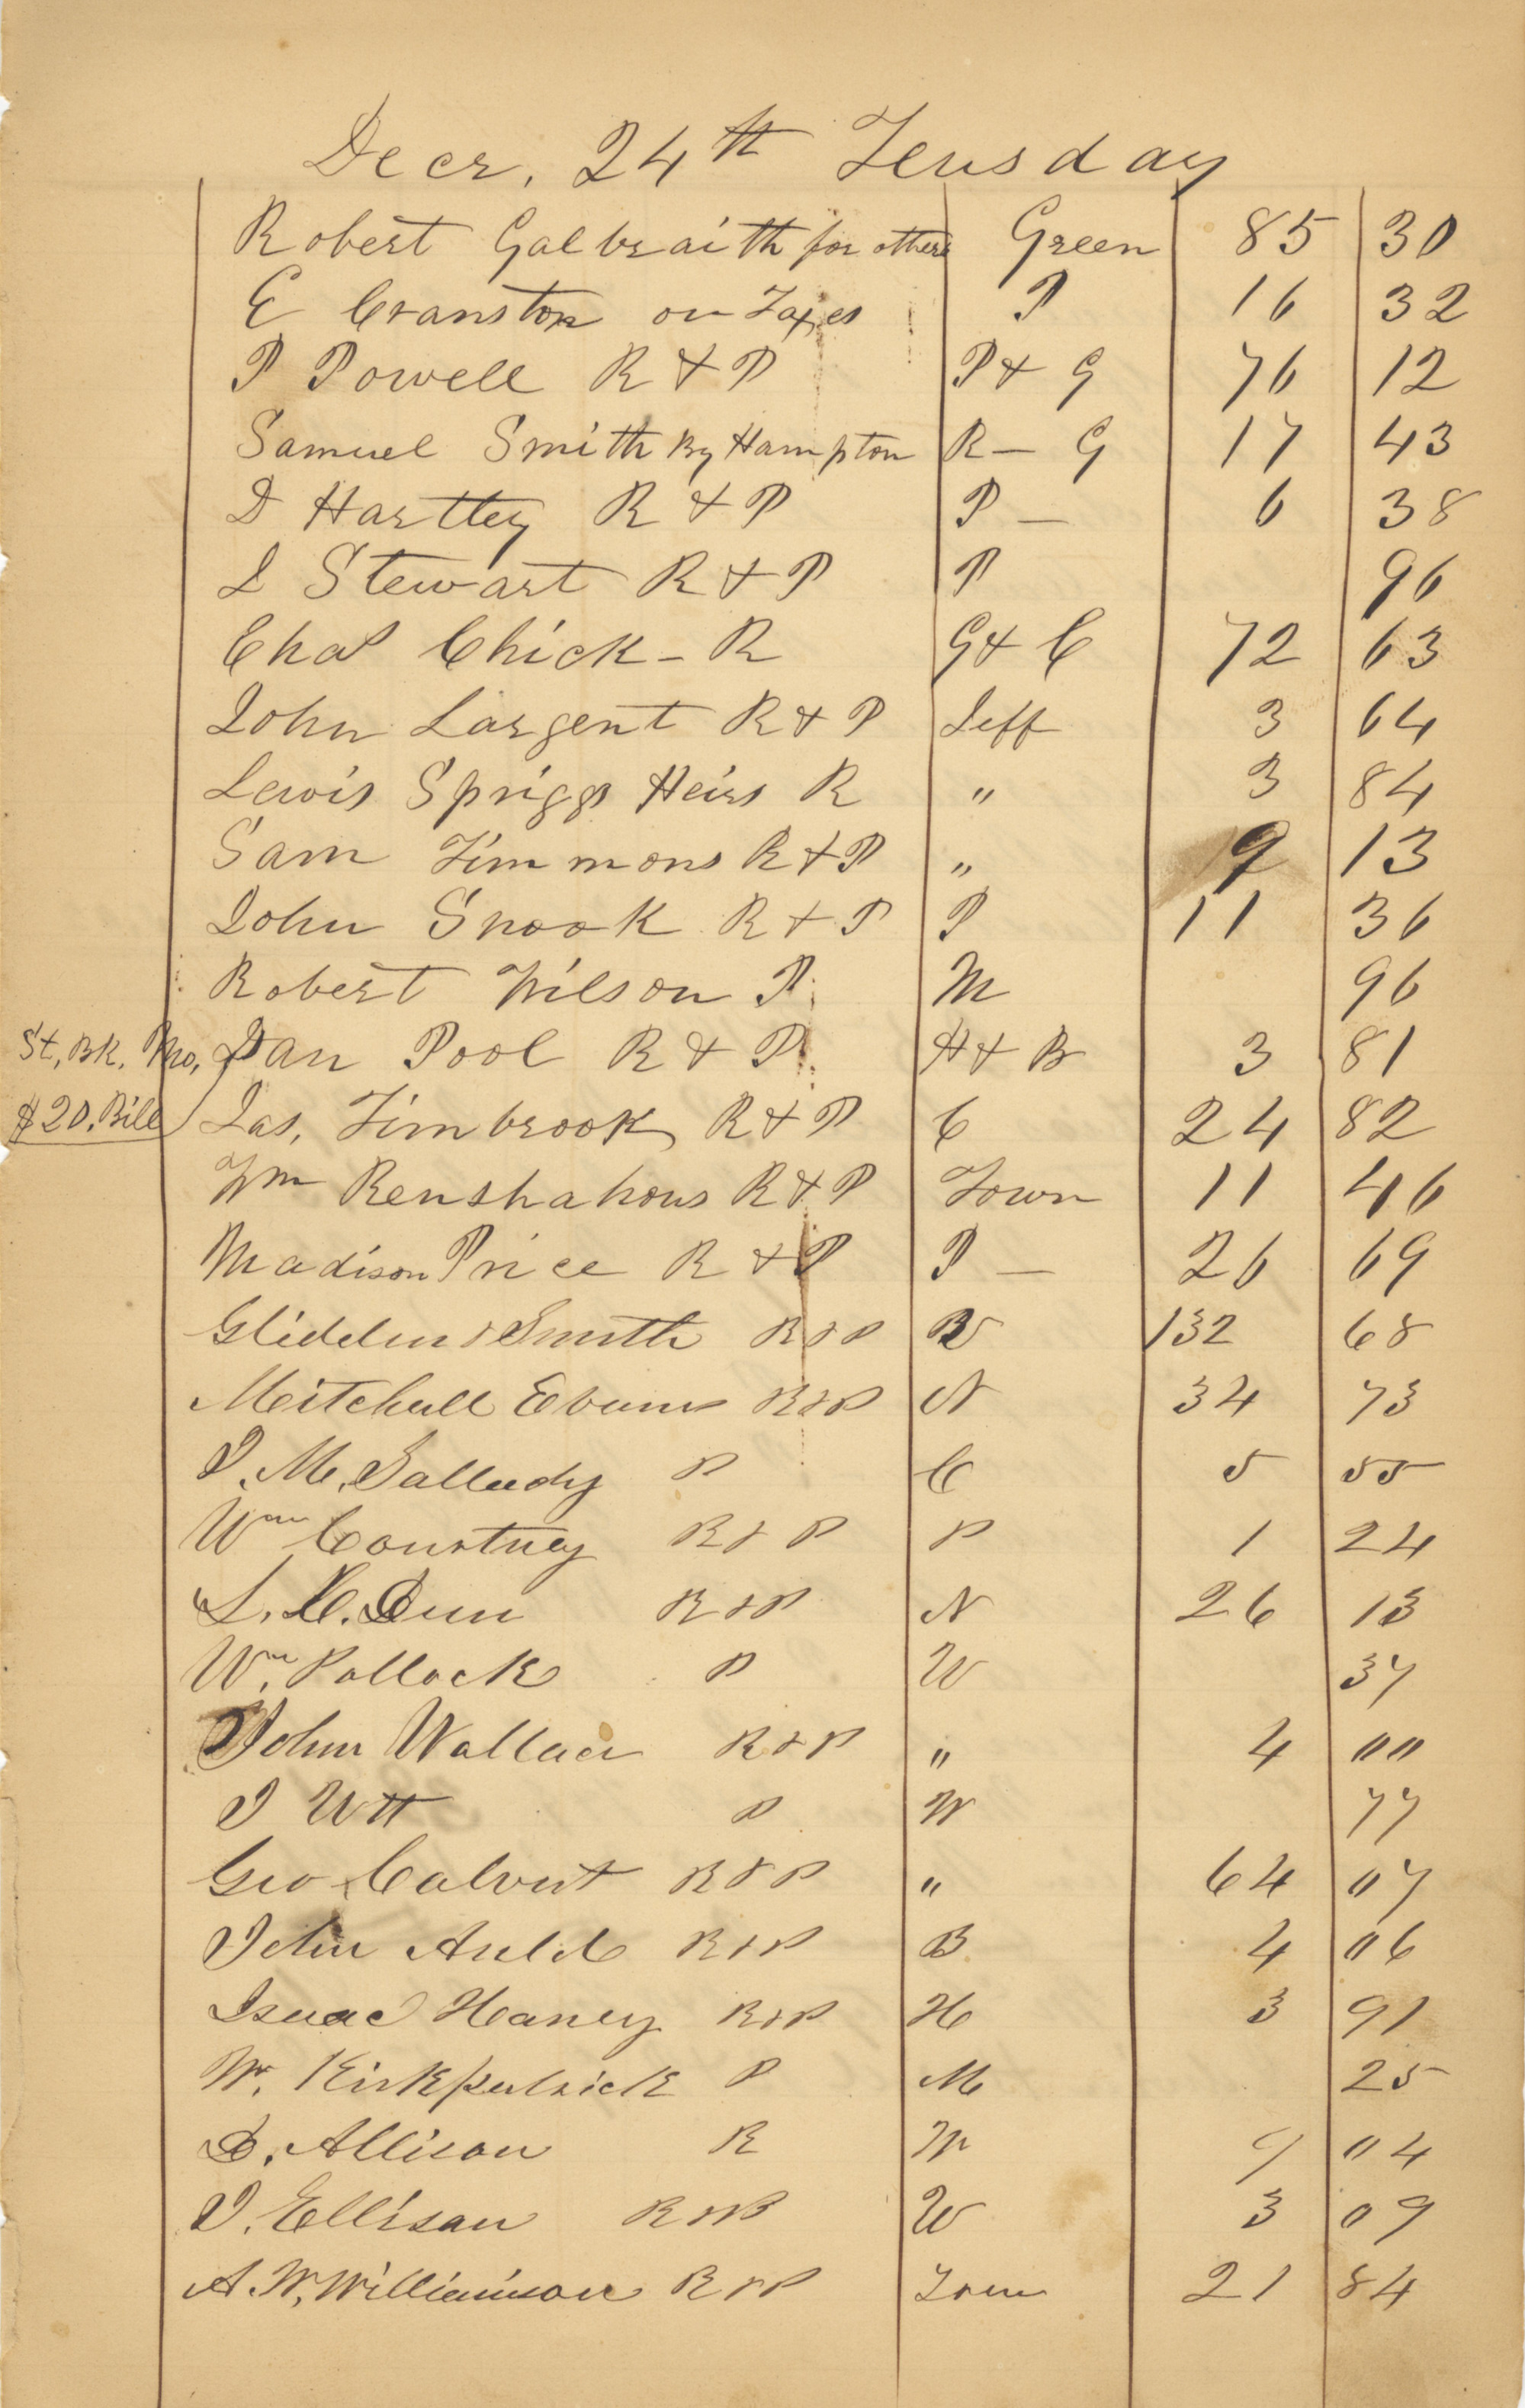 Decr. 24th Teusday
Robert Galbraith for others Green 85 30
E Cranston on Taxes P 16 32
P Powell R & P P & G 76 12
Samuel Smith By Hampton R — G 17 43
D Hartley R & P P — 6 38
L Stewart R & P P 96
Chas Chick - R G & C 72 63
John Largent R & P Jeff 3 64
Lewis Spriggs Heirs R " 3 84
Sam Timmons R & P " 9 13
John Snook R & P P 11 36
Robert Wilson P. M 96
St. Bk. Mo, Dan Pool R & P. H & B 3 81
$20. Bill Jas, Timbrook R & P C 24 82
Wm Renshahous R & P Town 11 46
Madison Price R & P P — 26 69
Glidden & Smith R & P 132 68
Mitchell Evans R & P N 34 73
J. M. P C 5 55
Wm Courtney R & P P 1 24
S. Dun R & P N 26 13
Wm. Pollock P W 37
John Wallace R & P " 4 00
J Utt P W 77
Geo Calvert R & P " 64 07
John Auld R & P B 4 06
Isaac Haney R & P H 3 91
W. Kirkpatrick P M 25
D. Allison R M 9 04
J. Ellison R & P W 3 09
A. W. Williamson R & P Town 21 84